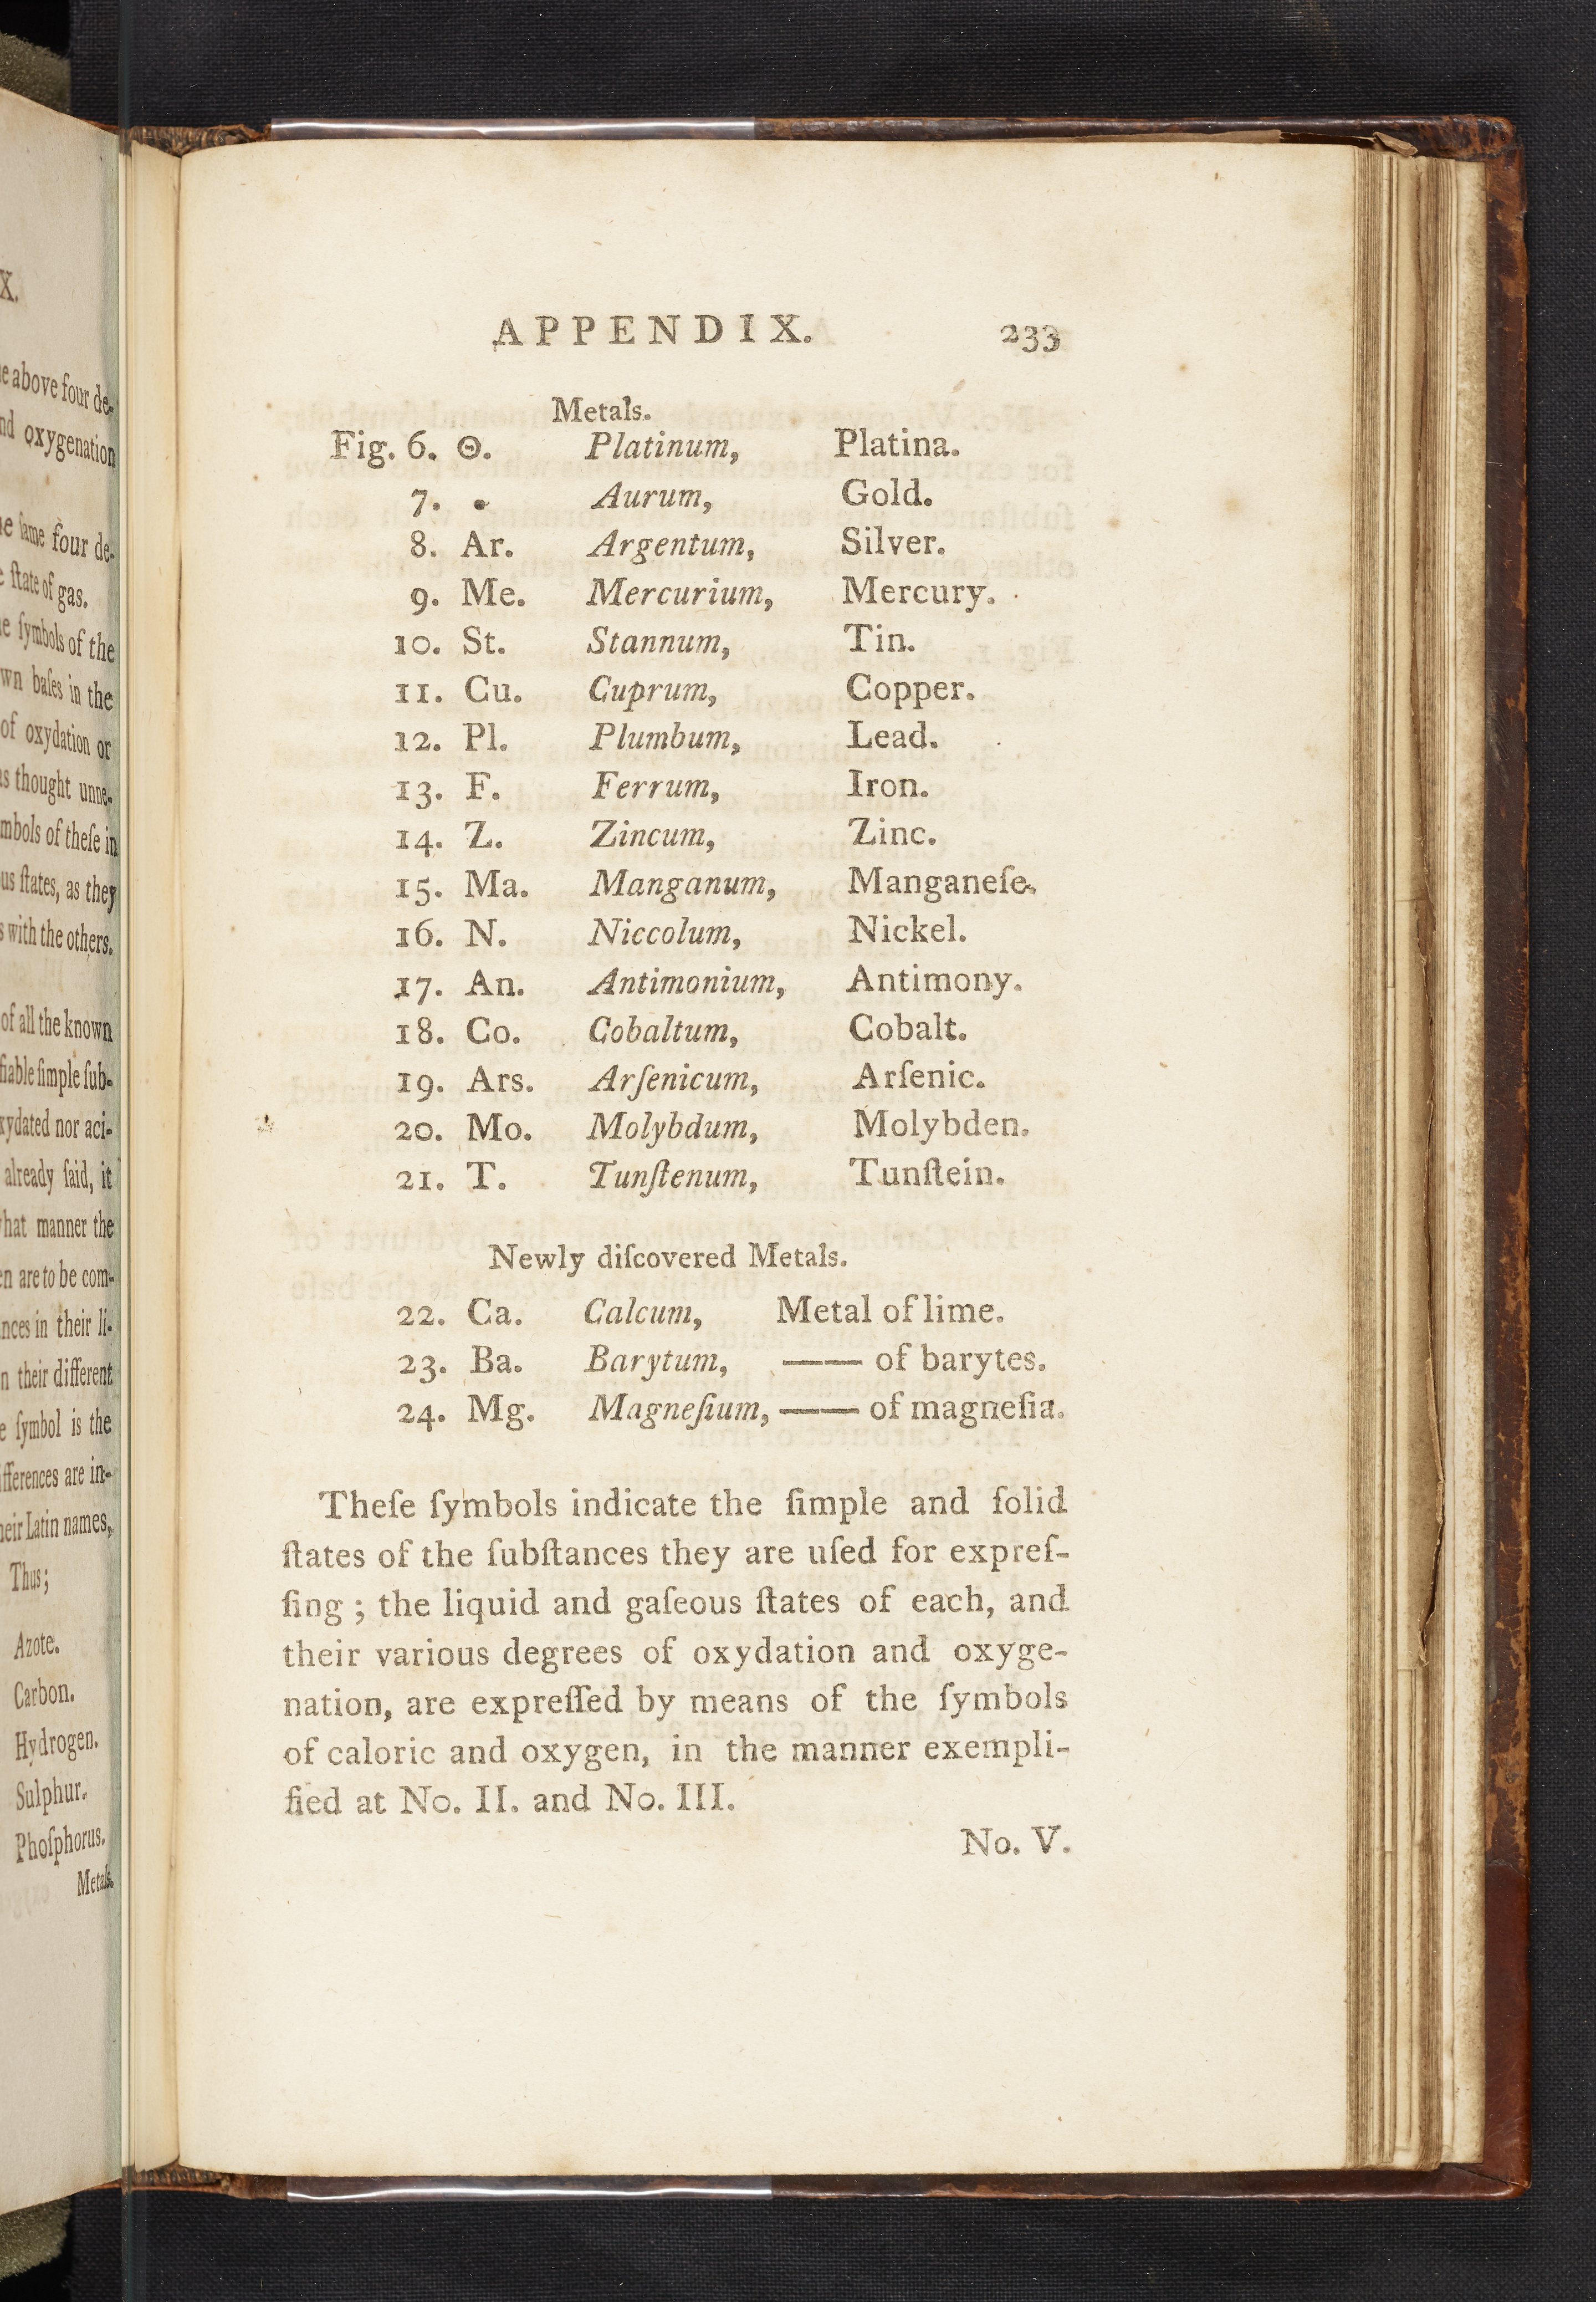 X.
e above four de-
nd oxygenation
e ſame four de-
ſtate of gas.
e ſymbols of the
wn baſes in the
of oxydation or
s thought unne-
mbols of theſe in
us ſtates, as they
s with the others.
of all the known
fiable ſimple ſub-
xydated nor aci-
already ſaid, it
hat manner the
en are to be com-
nces in their li-
n their different
e ſymbol is the
fferences are in-
eir Latin names,
Thus;
Azote.
Carbon.
Hydrogen.
Sulphur.
Phoſphorus.
Metals.
APPENDIX. 233
Metals.
Fig. 6. Θ. Platinum, Platina.
7. • Aurum, Gold.
8. Ar. Argentum, Silver.
9. Me. Mercurium, Mercury.
10. St. Stannum, Tin.
11. Cu. Cuprum, Copper.
12. Pl. Plumbum, Lead.
13. F. Ferrum, Iron.
14. Z. Zincum, Zinc.
15. Ma. Manganum, Manganeſe.
16. N. Niccolum, Nickel.
17. An. Antimonium, Antimony.
18. Co. Cobaltum, Cobalt.
19. Ars. Arſenicum, Arſenic.
20. Mo. Molybdum, Molybden.
21. T. Tunſtenum, Tunſtein.
Newly diſcovered Metals.
22. Ca. Calcum, Metal of lime.
23. Ba. Barytum, —— of barytes.
24. Mg. Magneſium, —— of magneſia.
Theſe ſymbols indicate the ſimple and ſolid
ſtates of the ſubſtances they are uſed for expreſ-
ſing ; the liquid and gaſeous ſtates of each, and
their various degrees of oxydation and oxyge-
nation, are expreſſed by means of the ſymbols
of caloric and oxygen, in the manner exempli-
fied at No. II. and No. III.
No. V.